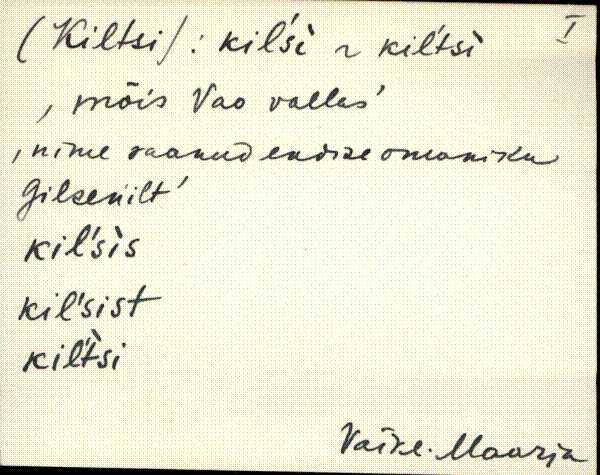 (Kiltsi): kil'śì ~ kil'tsì I
, mõis Vao vallas'
, nime saanud endise omaniku
Gilsen'ilt'
kil'sìs
kil'sist
kil'tsi
Väike-Maarja